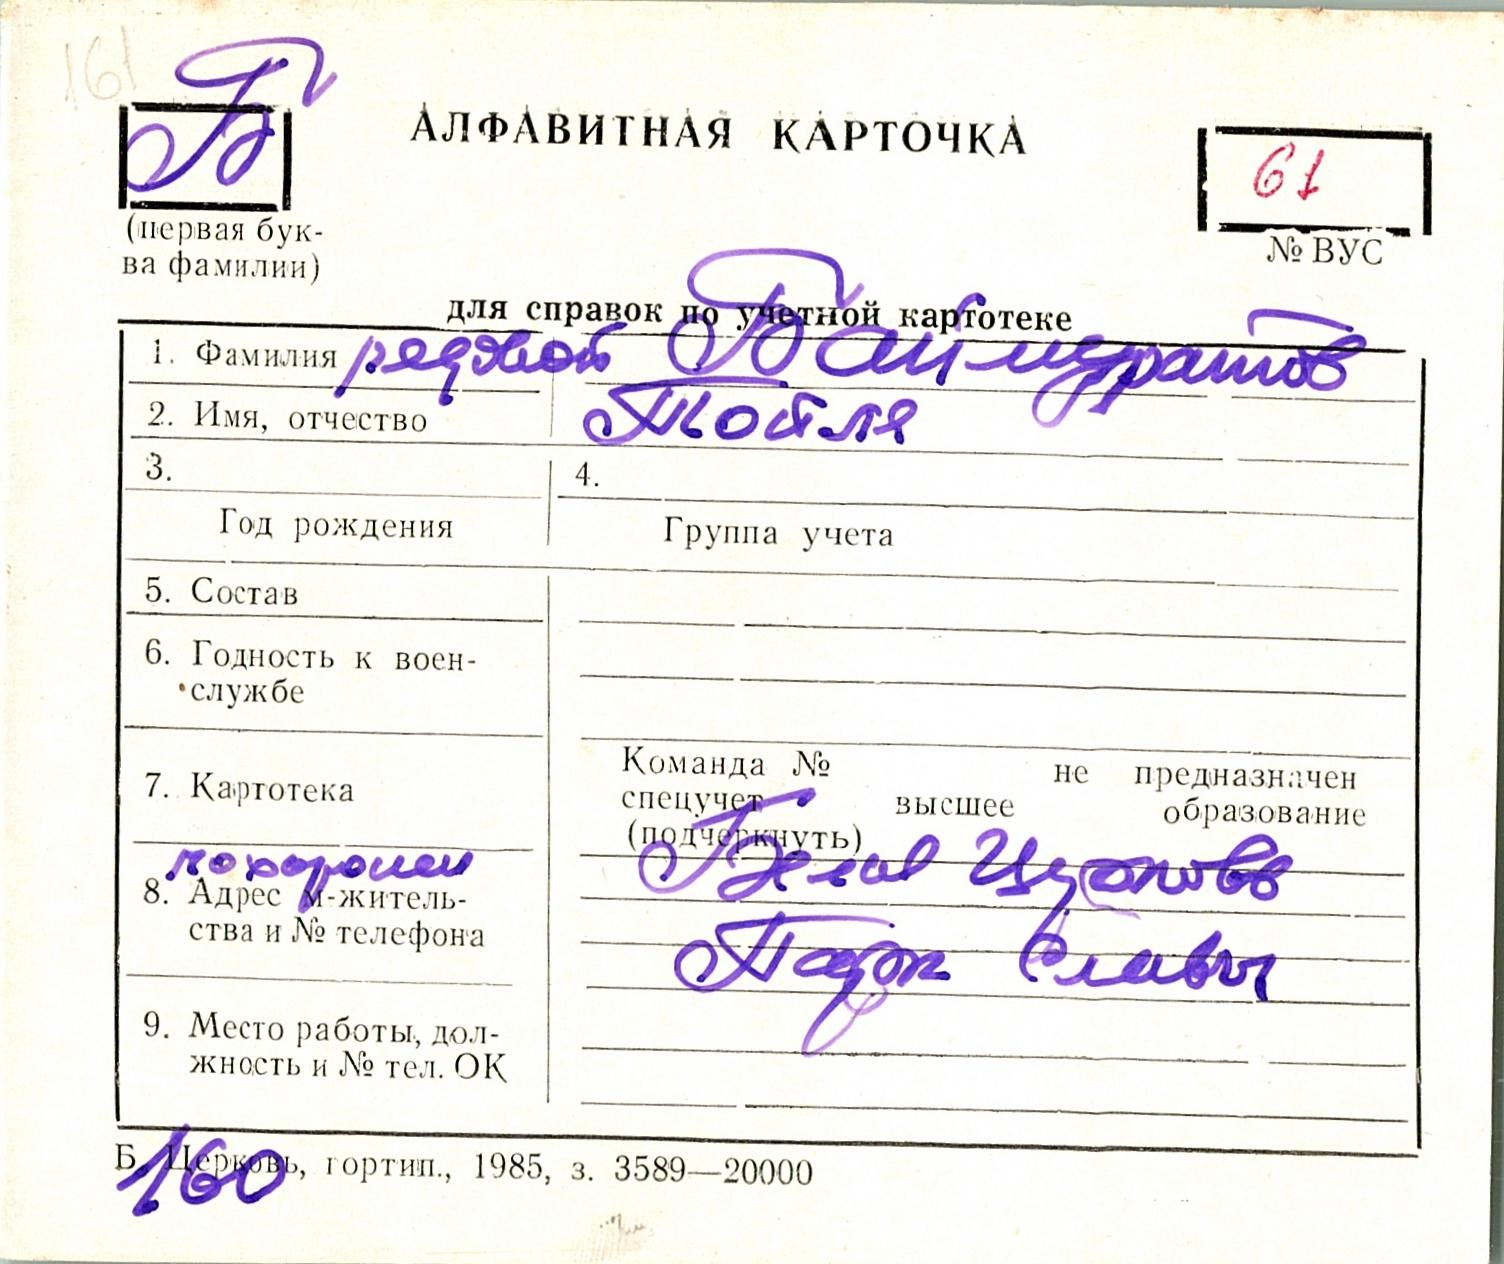 161
Б
АЛФАВИТНАЯ КАРТОЧКА
61
(первая бук-
ва фамилии)
№ ВУС
для справок по учетной картотеке
1. Фамилия рядовой Баймуратов
2. Имя, отчество Тойля
3.
4.
Год рождения
Группа учета
5. Состав
6. Годность к воен-
службе
7. Картотека
Команда № не предназначен
спецучет высшее образование
(подчеркнуть)
похоронен
Белая Церковь
8. Адрес м-житель-
ства и № телефона
Парк Славы
9. Место работы, дол-
жность и № тел. ОК
Б. Церковь, гортип., 1985, з. 3589—20000
160